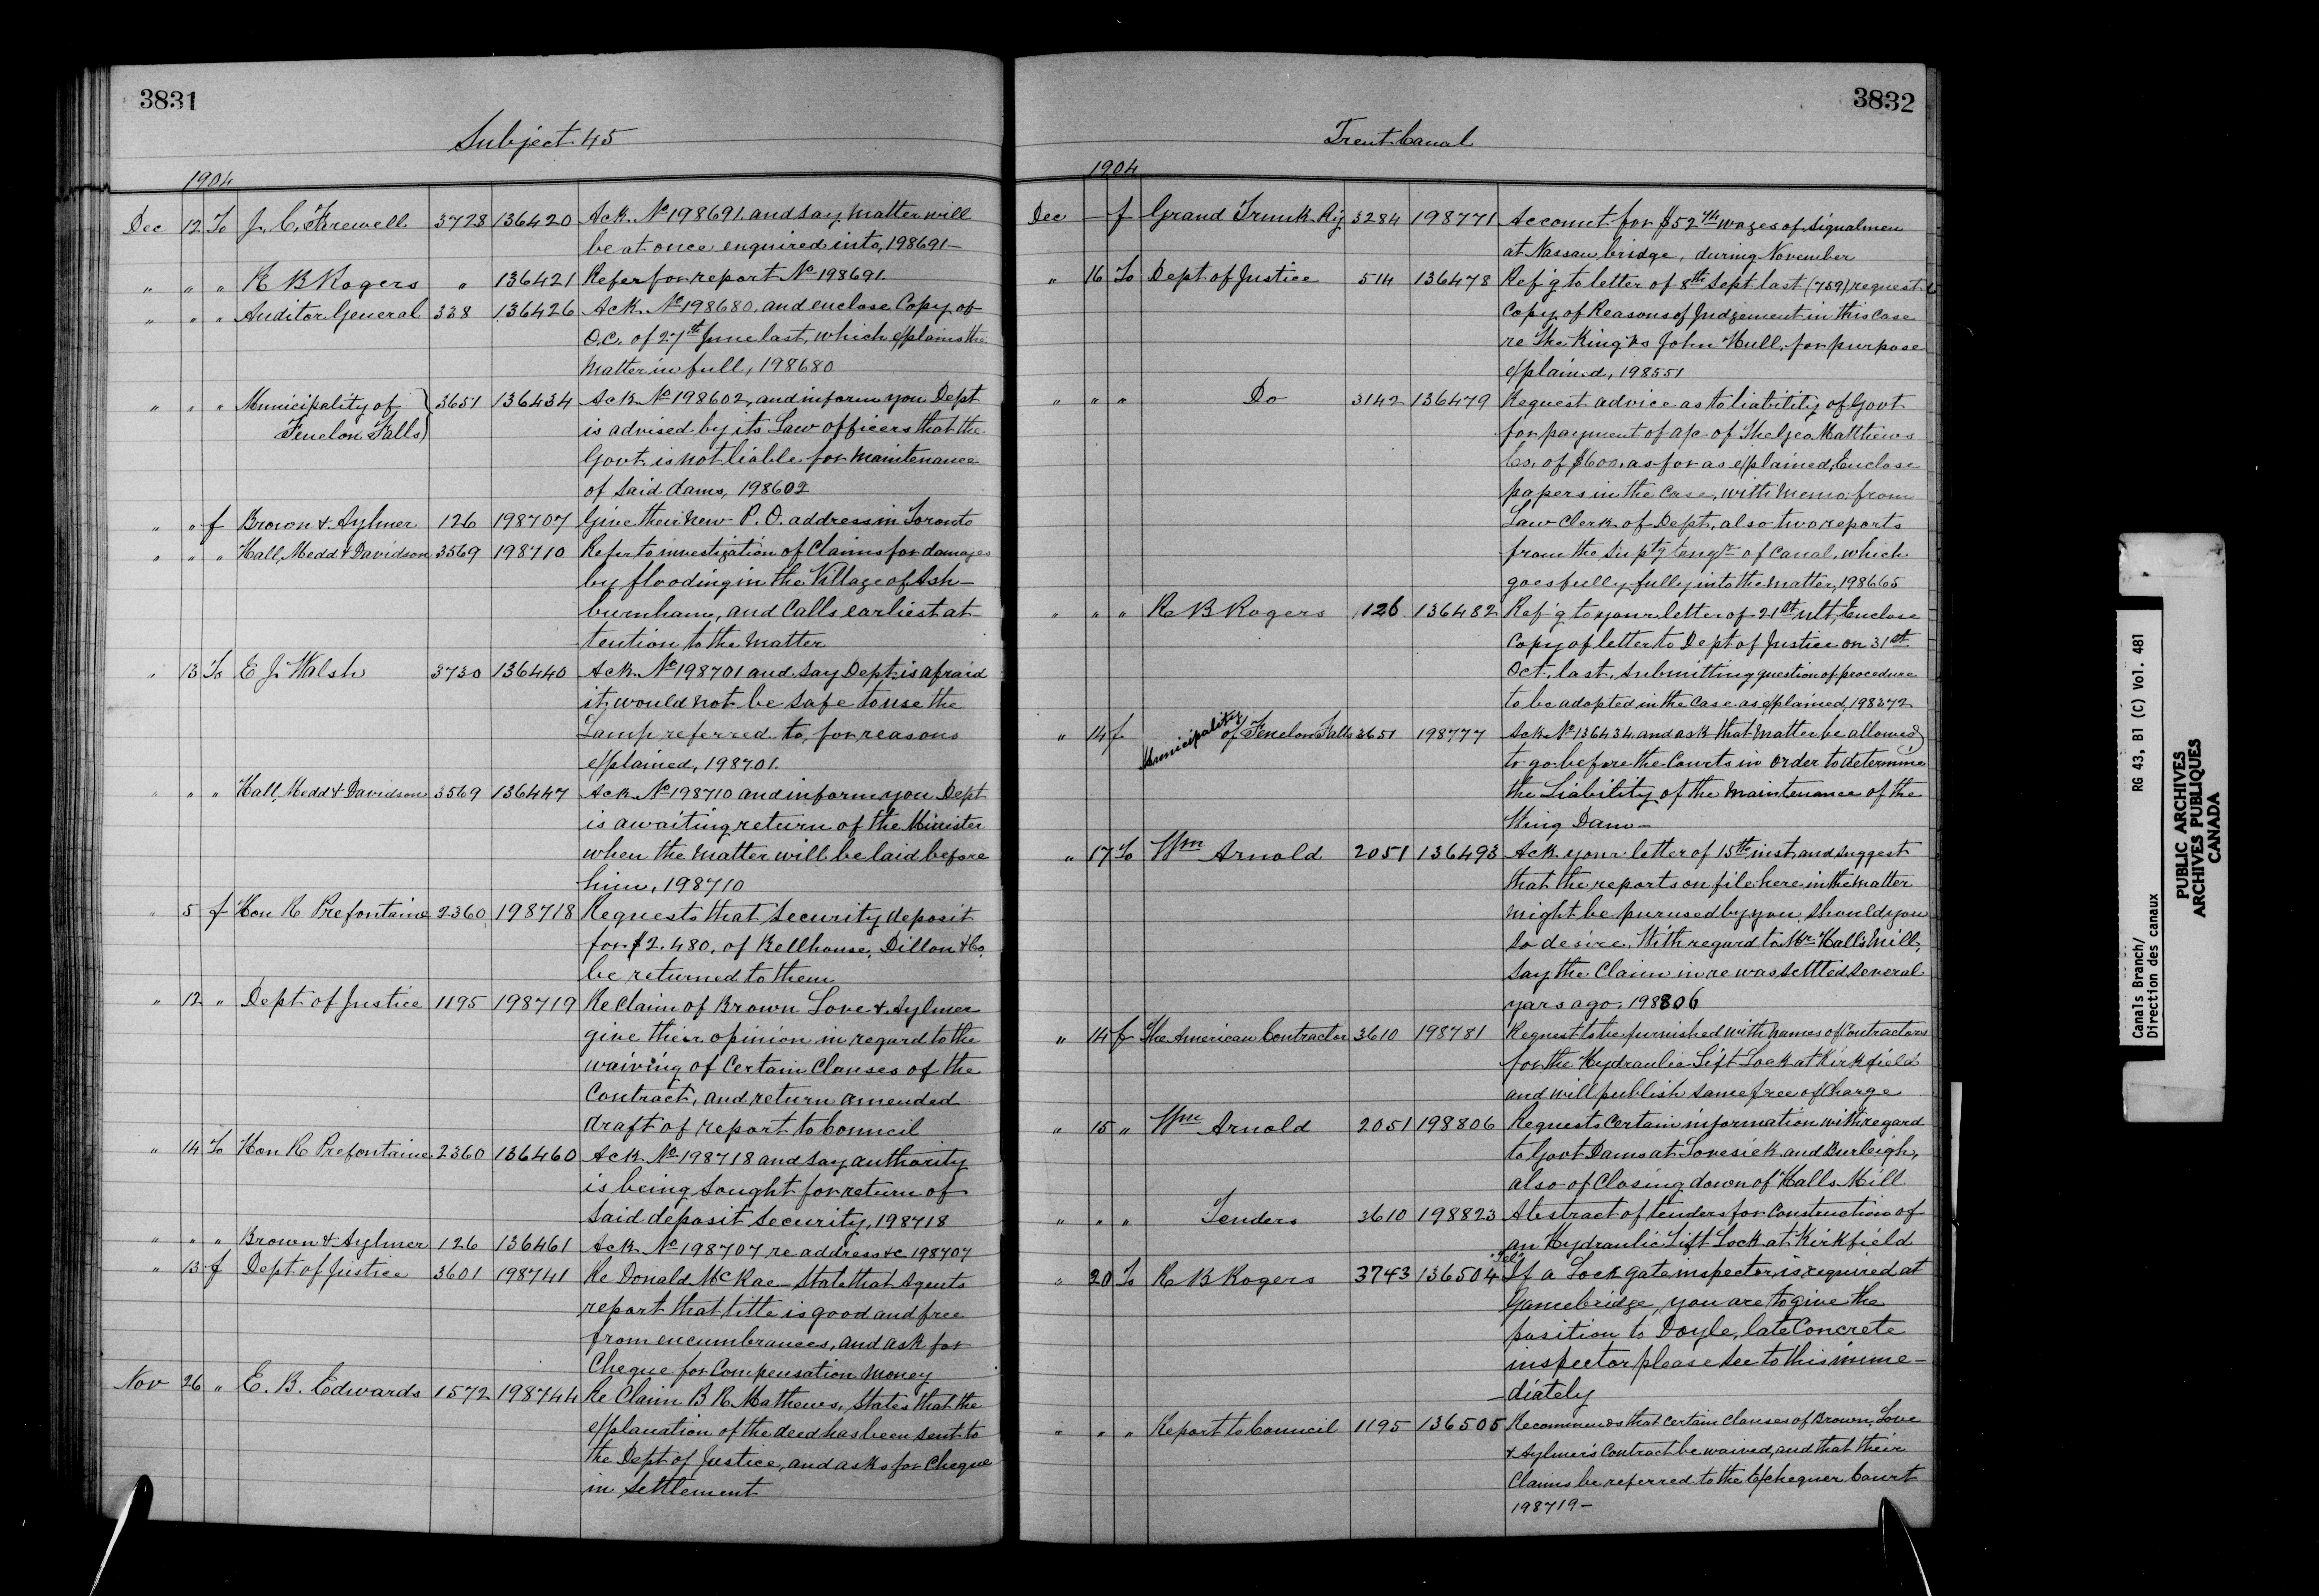 3831
Subject 45
1904
Dec 12 To J. C. Farewell 3728 136420 Ack. No 198691. and say matter will
be at once enquired into, 198691-
" " " R B Rogers " 136421 Refer for report No 198691.
" " " Auditor General 338 136426 Ack. No 198680. and enclose Copy of
O.C. of 27th June last, which explains the
matter in full, 198680
" " " Municipality of 3651 136434 Ack No 198602, and inform you Dept
Fenelon Falls is advised by its Law officers that the
Govt. is not liable for maintenance
of said dams, 198602
" " f Brown & Aylmer 126 198707 Give their new P. O. address in Toronto
" " " Hall, Medd & Davidson 3569 198710 Refer to investigation of Claims for damages
by flooding in the Village of Ash-
burnham, and Calls earliest at-
tention to the matter
" 13 To E J. Walsh 3730 136440 Ack No 198701 and say Dept. is afraid
it would not be safe to use the
Lamp referred to, for reasons
explained, 198701.
" " " Hall, Medd & Davidson 3569 136447 Ack No 198710 and inform you Dept
is awaiting return of the Minister
when the matter will be laid before
him, 198710
" 5 f Hon R Prefontaine 2360 198718 Requests that security deposit
for $2.480. of Bellhouse, Dillon & Co.
be returned to them
" 12 " Dept. of Justice 1195 198719 Re Claim of Brown Love & Aylmer
give their opinion in regard to the
waiving of Certain Clauses of the
Contract, and return amended
draft of report to Council
" 14 To Hon R Prefontaine 2360 136460 Ack No 198718 and say authority
is being sought for return of
said deposit security, 198718
" " " Brown & Aylmer 126 136461 Ack No 198707 re address &c 198707
" 13 f Dept of Justice 3601 198741 Re Donald McRae- State that Agents
report that title is good and free
from encumbrances, and ask for
Cheque for Compensation money
Nov 26 " E. B. Edwards 1572 198744 Re Claim B R Mathews, States that the
explanation of the deed has been sent to
the Dept of Justice, and asks for Cheque
in settlement
3832
Trent Canal
1904
Dec - f Grand Trunk Ry 3284 198771 Account for $52 wages of signalmen
at Nassau bridge, during November
" 16 To Dept. of Justice 514 136478 Ref'g to letter of 8th Sept last (759) request
Copy of Reasons of Judgement in this Case
re The King vs John Hull, for purpose
explained, 198551
" " " Do 3142 136479 Request advice as to liability of Govt
for payment of a/c of The Geo Matthews
Co. of $600. as for as explained, Enclose
papers in the Case, with memo. from
Law Clerk of Dept, also two reports
from the Supt'g Eng'r of Canal, which
goes fully fully into the matter, 198665
" " " R B Rogers 126 136482 Ref'g to your letter of 21st ult, Enclose
Copy of letter to Dept of Justice on 31st
Oct. last, submitting question of procedure
to be adopted in the Case as explained, 198372
" 14 f Municipality of Fenelon Falls 3651 198777 Ack No 136434 and ask that matter be allowed
to go before the Courts in order to determine
the Liability of the maintenance of the
Wing Dam-
" 17 To Wm Arnold 2051 136493 Ack your letter of 15th inst, and suggest
that the reports on file here in the matter
might be purused by you, should you
so desire. With regard to Mr Hall's Mill,
say the Claim in re was settled several
yars ago. 198806
" 14 f The American Contractor 3610 198781 Request to be furnished with names of Contractors
for the Hydraulic Lift Lock at Kirkfield
and will publish same free of Charge
" 15 " Wm Arnold 2051 198806 Requests Certain information with regard
to Govt Dams at Lovesick and Burleigh,
also of Closing down of Halls Mill
" " " Tenders 3610 198823 Abstract of tenders for Construction of
an Hydraulic Lift Lock at Kirkfield
" 20 To R B Rogers 3743 136504 "Tel" If a Lock gate inspector, is required at
Gamebridge, you are to give the
position to Doyle, late Concrete
inspector please see to this imme-
-diately
" " " Report to Council 1195 136505 Recommends that Certain Clauses of Brown, Love
& Aylmer's Contract be waived, and that their
Claims be referred to the Exchequer Court
198719-
Canals Branch/ RG 43, B1 (C) Vol. 481
Direction des canaux
PUBLIC ARCHIVES
ARCHIVES PUBLIQUES
CANADA